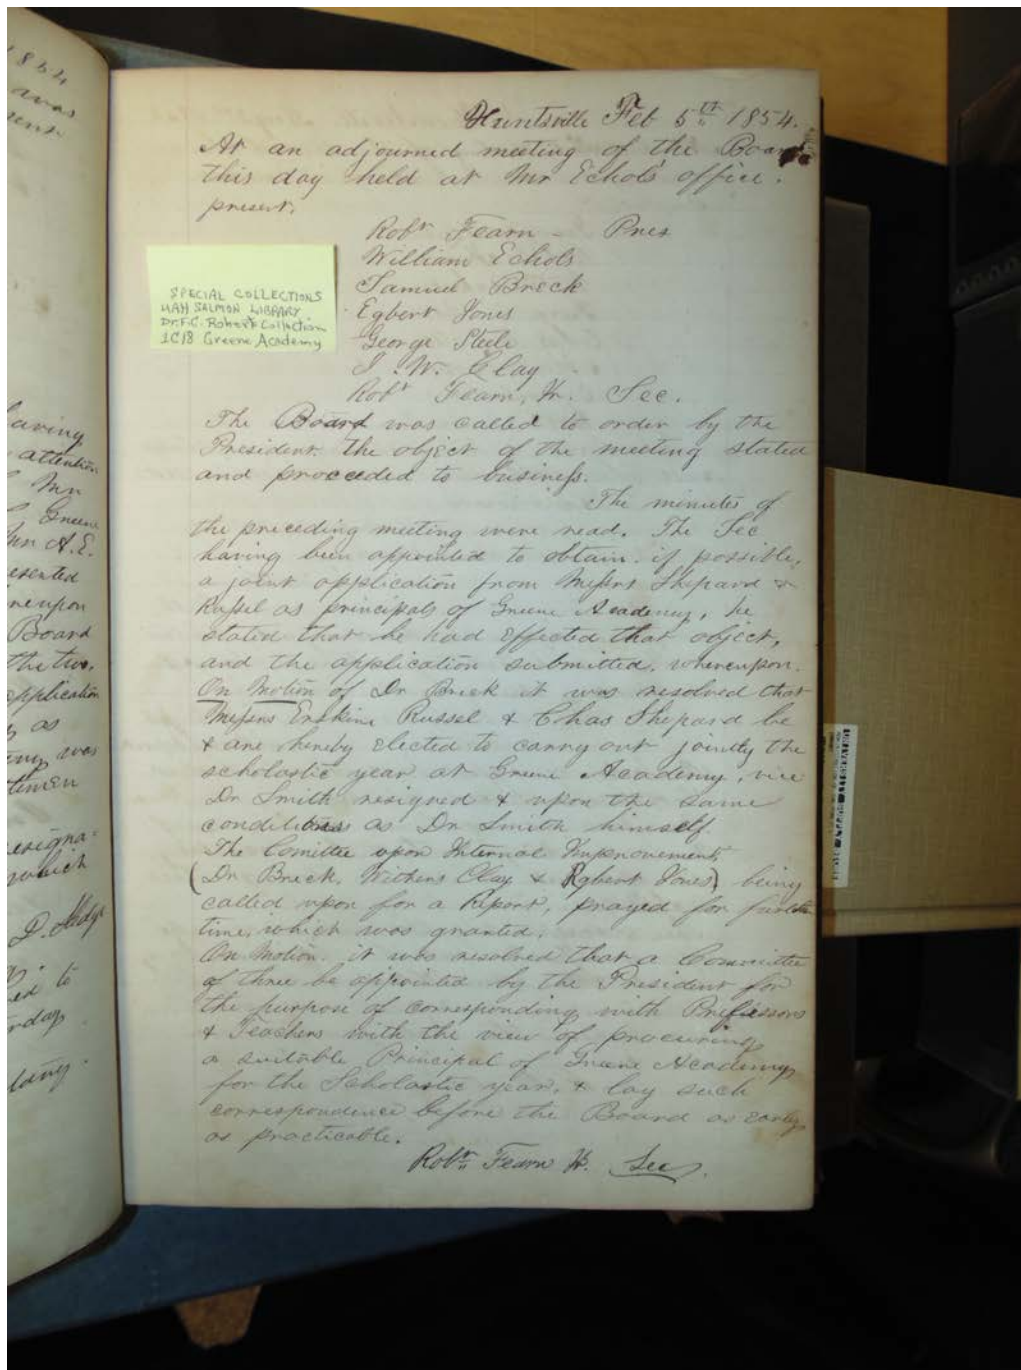 1854
was
Huntsville Feb 5th 1854.
At an adjourned meeting of the Board
this day held at Mr Echols office.
present.
Robt Fearn - Pres
William Echols
Samuel Breck
Egbert Jones
George Steele
J. W. Clay
Robt Fearn, Jr. Sec.
SPECIAL COLLECTIONS
UAH SALMON LIBRARY
Dr. F.C. Roberts Collection
1C18 Greene Academy
The Board was called to order by the
President. the object of the meeting stated
and proceeded to business.
The minutes of
the preceding meeting were read. The Sec
having been appointed to obtain. if possible,
a joint application from Messrs Shepard &
Russel as principals of Greene Academy, he
stated that he had effected that object,
and the application submitted. whereupon.
On Motion of Dr Breck it was resolved that
Messrs Erskine Russel & Chas Shepard be
& are hereby elected to carry out jointly the
scholastic year at Greene Academy, vice
Dr Smith resigned & upon the same
conditions as Dr Smith himself.
The Comittee upon Internal Improvements
(Dr Breck, Withers Clay & Egbert Jones) being
called upon for a Report, prayed for further
time, which was granted.
On Motion. it was resolved that a Committee
of three be appointed by the President for
the purpose of corresponding with Professors
& Teachers with the view of procuring
a suitable Principal of Greene Academy
for the Scholastic year, & lay such
correspondence before the Board as early
as practicable.
Robt Fearn Jr. Sec.
having
attention
Mr
Greene
Mr A.E.
Board
the two.
application
as
was
which
to